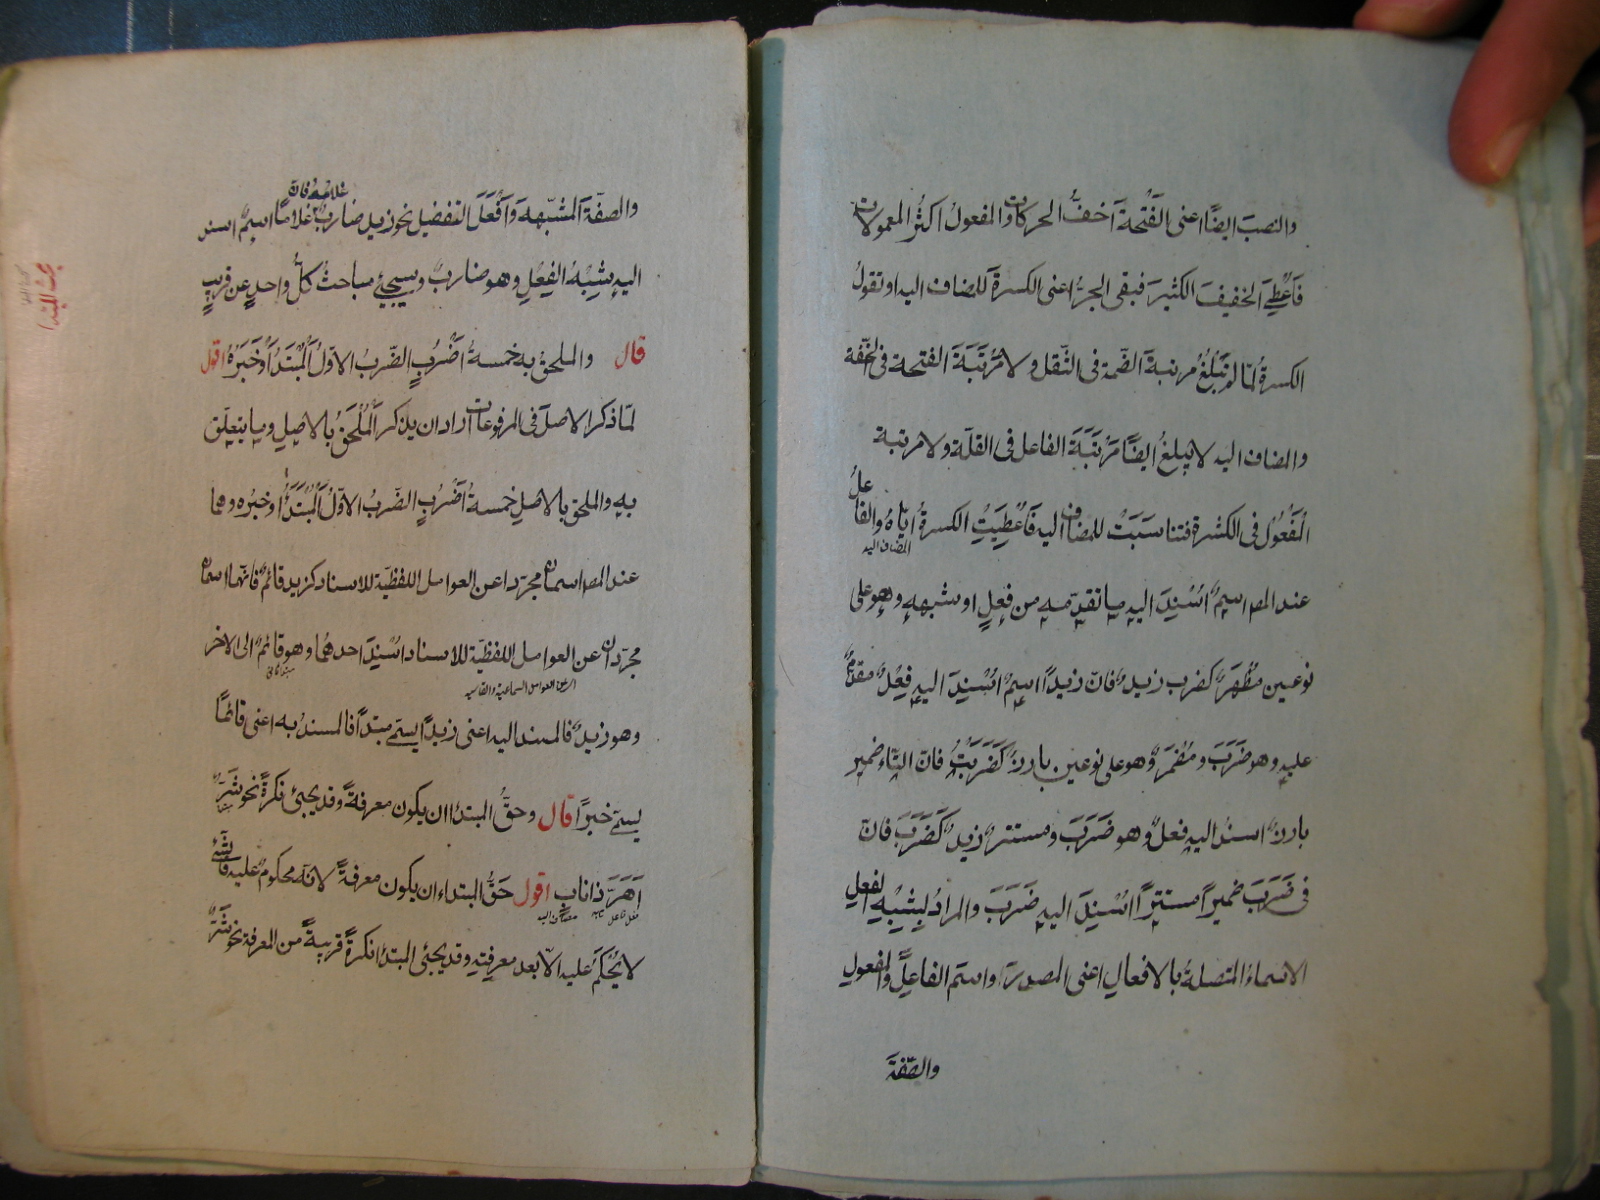 والنصبَ ايضًا اعنى الفَتْحةَ اخفُّ الحركات والمفعولُ اكثرُ المعمولات
فاُعْطِىَ الخفيفَ الكثيرَ فبقى الجرُّ اعنى الكسرةَ للمضاف اليه او تقولُ
الكسرةُ لمّا لم تَبْلُغْ مرتبةَ الضمة فى الثّقل ولا مَرْتَبَةَ الفتحة فى الخفّة
والمضاف اليه لا يبلغُ ايضًا مَرْتَبَةَ الفاعل فى القلّة ولا مرتبة
المَفْعُول فى الكثرة فتناسَبَتْ للمضاف اليه فاُعْطِيَتِ الكسرةُ ايّاهُ والفاعلُ
المضاف اليه
عند المصـ اسمٌ اُسْنِدَ اليه ما تقدّمه من فعلٍ او شبههِ وهو على
نوعين مُظْهَرٌ كضرب زيدٌ فانّ زيدًا اسمٌ اُسْنِدَ اليه فِعْلٌ مقدّمٌ
عليه وهو ضَرَبَ ومُضْمَرٌ وهو على نوعين بارزٌ كَضَرَبْتُ فانّ التاء ضمير
بارزٌ اسند اليه فعلٌ وهو ضَرَبَ ومستترٌ زيدٌ كَضَرَبَ فانّ
فى ضَرَبَ ضميرًا مستترًا اُسْنِدَ اليه ضَرَبَ والمرادُ بِشِبْهِ الفعلِ
الاسماءُ المتصلةُ بالافعالِ اعنى المصدرَ واسمَ الفاعلِ والمفعولِ
والصّفةَ
والصفةَ المشبّهةَ وَاَفْعَلَ التفضيل نحو زيد ضاربٌ غلامُه فانّ غلامًا اسمٌ اسند
اليه شِبْهُ الفِعْلِ وهو ضاربٌ وسيجئُ مباحثُ كلِّ واحدٍ عن قريبٍ
قال والملحق به خمسةُ اَضْرُبٍ الضّربُ الاوّلُ المُبْتَدَأُ وَخَبَرُهُ اقول
لمّا ذكر الاصلَ فى المرفوعات اراد ان يذكر المُلْحَقَ بالاصلِ وما يتعلّق
به والملحق بالاصلِ خمسةُ اَضْرُبٍ الضّربُ الاوّلُ المُبْتَدَأُ وخبرُه وهما
عند المصـ اسمان مجرّدا عن العوامل اللفظيّة للاسناد كزيد قائمٌ فانّهما اسمان
مجرّدان عن العوامل اللفظيّة للاسناد اُسْنِدَ احدهُما وهو قائمٌ الى الاخر
اى عن العوامل السماعية والقياسية
وهو زيدٌ فالمسند اليه اعنى زيدًا يسمّى مبتدأً فالمسندُ به اعنى قائمًا
يسمّى خبرًا قال وحقُّ المبتدأ ان يكون معرفةً وقد يجئ نكرةً نحو شَرٌّ
اَهَرَّ ذا نابٍ اقول حَقُّ المبتداء ان يكون معرفةً لانّه محكومٌ عليه والشئ
فعل فاعل
لا يُحْكَمُ عليه الّا بعد معرفتِهِ وقد يجئ المبتدأ نكرةً قريبةً من المعرفة نحو شَرٌّ
بحث المبتدا